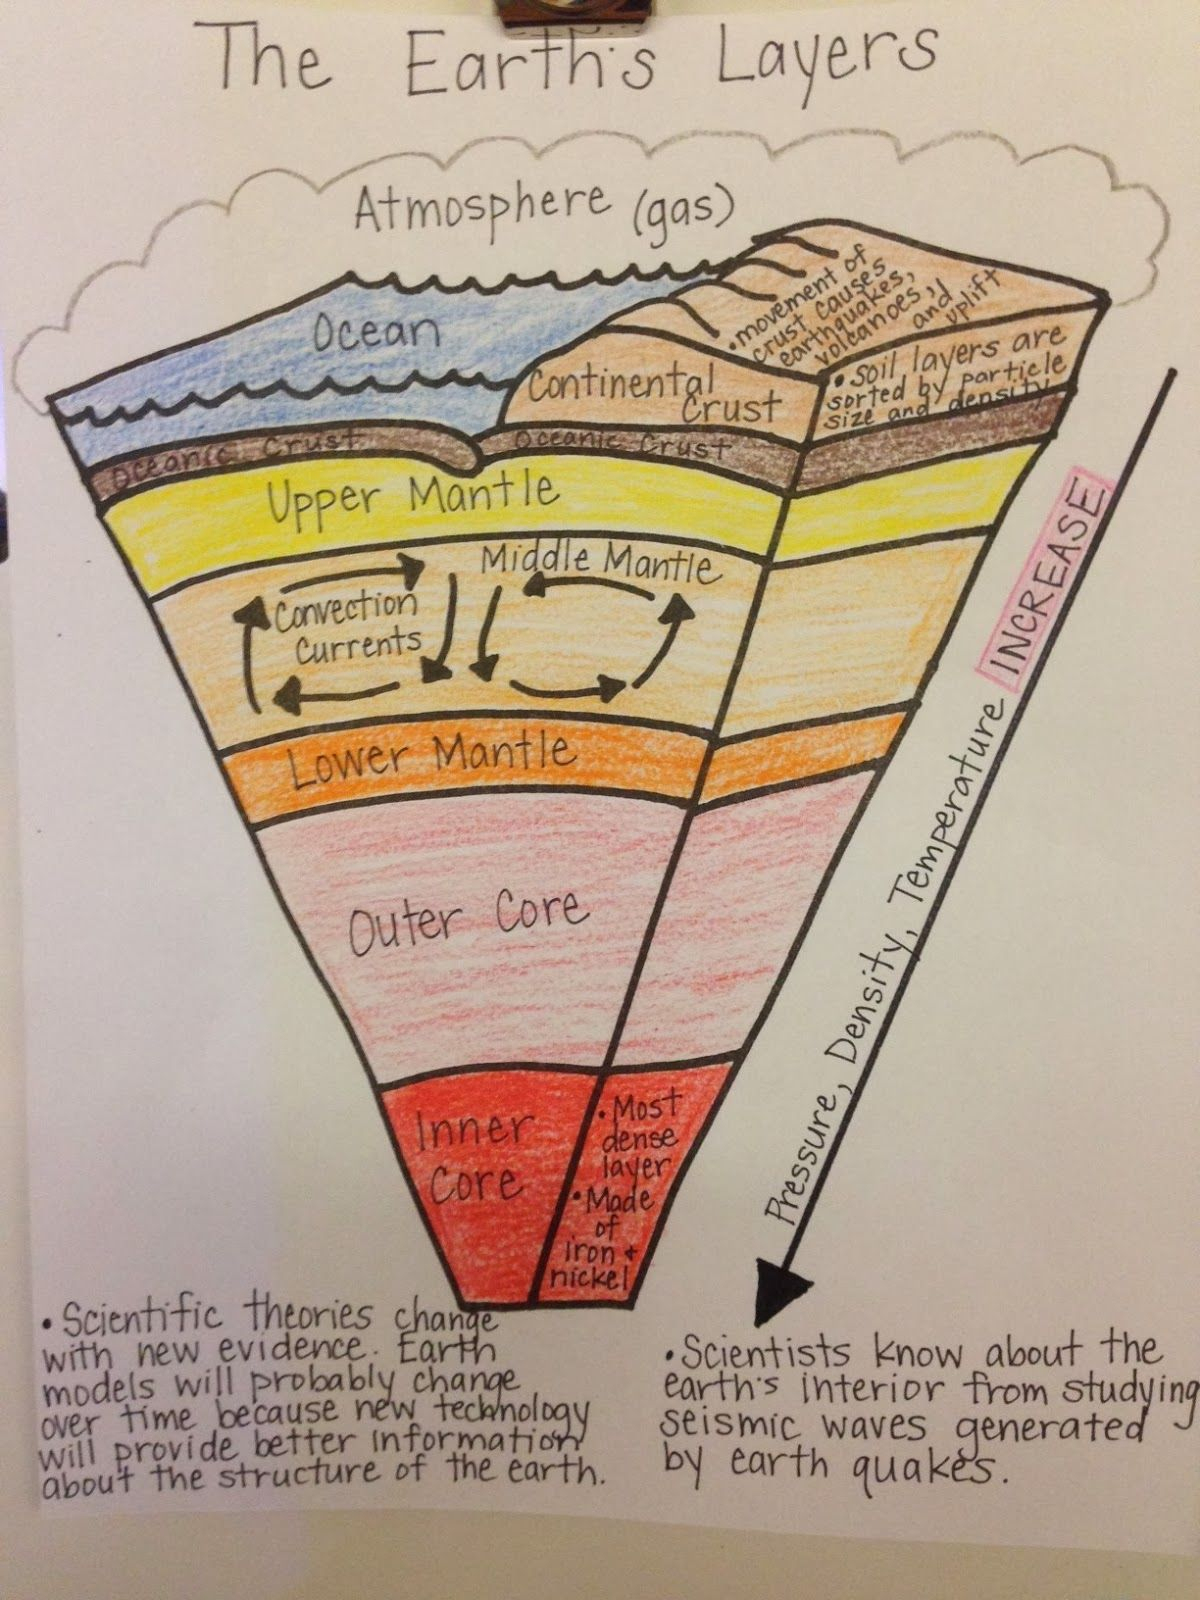 The Earth's Layers
Atmosphere (gas)
Ocean
• movement of
crust causes
earthquakes,
volcanoes,
and
uplift
Continental
Crust
• Soil layers are
sorted by particle
size and density
Oceanic Crust
Oceanic Crust
Upper Mantle
Middle Mantle
Convection
Currents
Lower Mantle
Outer Core
Inner
Core
• Most
dense
layer
• Made
of
iron +
nickel
Pressure, Density, Temperature INCREASE
• Scientific theories change
with new evidence. Earth
models will probably change
over time because new technology
will provide better information
about the structure of the earth.
• Scientists know about the
earth's interior from studying
seismic waves generated
by earth quakes.